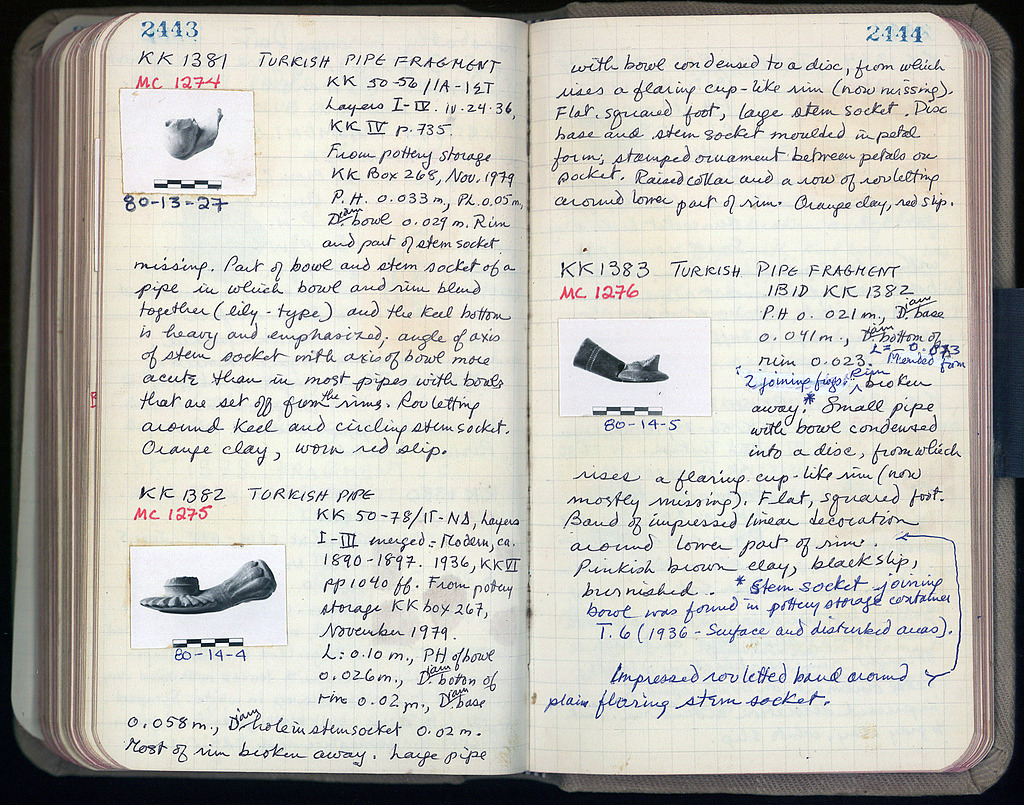 2443
KK 1381 TURKISH PIPE FRAGMENT
MC 1274
KK 50-56/IA-IΣT
Layers I-IV. IV.24.36,
KK IV p.735.
From pottery storage
KK Box 268, Nov. 1979
P.H. 0.033 m, PL 0.05 m,
Diam bowl 0.029 m. Rim
and part of stem socket
80-13-27
missing. Part of bowl and stem socket of a
pipe in which bowl and rim blend
together (lily-type) and the keel bottom
is heavy and emphasized. angle of axis
of stem socket with axis of bowl more
acute than in most pipes with bowls
that are set off from the rims. Rouletting
around keel and circling stem socket.
Orange clay, worn red slip.
KK 1382 TURKISH PIPE
MC 1275
KK 50-78/IΓ-NΔ, Layers
I-III merged = Modern, ca.
1890-1897. 1936, KK VI
pp 1040 ff. From pottery
storage KK box 267,
November 1979.
L: 0.10 m., PH of bowl
0.026 m., Diam. botton of
rim 0.02 m., Diam base
80-14-4
0.058 m., Diam hole in stem socket 0.02 m.
Most of rim broken away. Large pipe
2444
with bowl condensed to a disc, from which
rises a flaring cup-like rim (now missing).
Flat, squared foot, large stem socket. Disc
base and stem socket moulded in petal
form; stamped ornament between petals on
socket. Raised collar and a row of rouletting
around lower part of rim. Orange clay, red slip.
KK 1383 TURKISH PIPE FRAGMENT
MC 1276
IBID KK 1382
P.H 0.021 m., Diam base
0.041 m., Diam. bottom of
rim 0.023. L= 0.073
Mended from
2 joining frags. Rim broken
away.* Small pipe
with bowl condensed
into a disc, from which
80-14-5
rises a flaring cup-like rim (now
mostly missing). Flat, squared foot.
Band of impressed linear decoration
around lower part of rim.
Pinkish brown clay, black slip,
burnished. * Stem socket joining
bowl was found in pottery storage container
T.6 (1936 - Surface and disturbed areas).
Impressed rouletted band around
plain flaring stem socket.